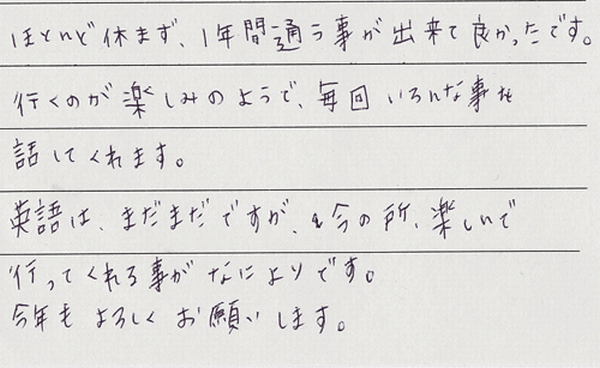 ほとんど休まず、1年間通う事が出来て良かったです。
行くのが楽しみのようで、毎回いろんな事を
話してくれます。
英語は、まだまだですが、今の所、楽しいで
行ってくれる事がなによりです。
今年もよろしくお願いします。